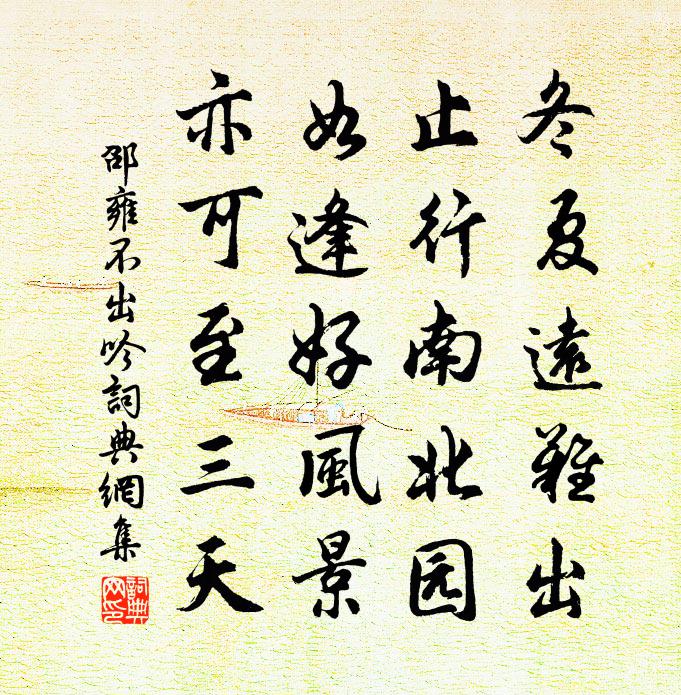 冬夏遠難出
止行南北园
如逢好風景
亦可至三天
邵雍不出吟詞典網集
詞典網印